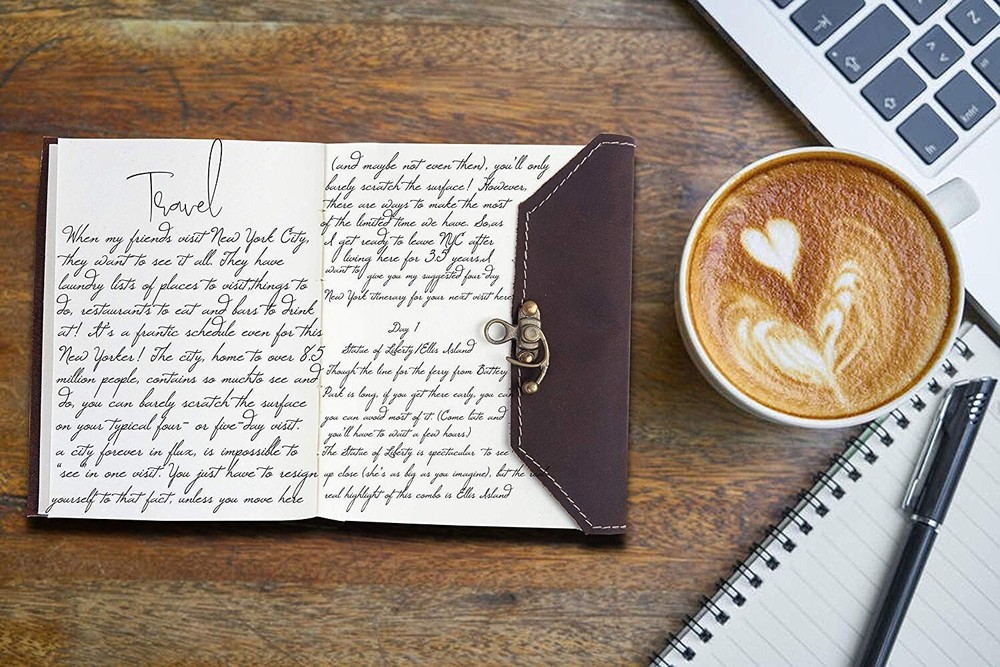 Travel
When my friends visit New York City,
they want to see it all. They have
laundry lists of places to visit,things to
do, restaurants to eat and bars to drink
at! It's a frantic schedule even for this
New Yorker! The city, home to over 8.5
million people, contains so muchto see and
do, you can barely scratch the surface
on your typical four- or five-day visit.
a city forever in flux, is impossible to
"see" in one visit. You just have to resign
yourself to that fact, unless you move here
(and maybe not even then), you'll only
barely scratch the surface! However,
there are ways to make the most
of the limited time we have. So,as
I get ready to leave NYC after
living here for 3.5 years,I
want to give you my suggested four-day
New York itinerary for your next visit here
Day 1
Statue of Liberty/Ellis Island
Though the line for the ferry from Battery
Park is long, if you get there early, you can
you can avoid most of it. (Come late and
you'll have to wait a few hours)
The Statue of Liberty is spectacular to see
up close (she's as big as you imagine), but the
real highlight of this combo is Ellis Island
Z
fn